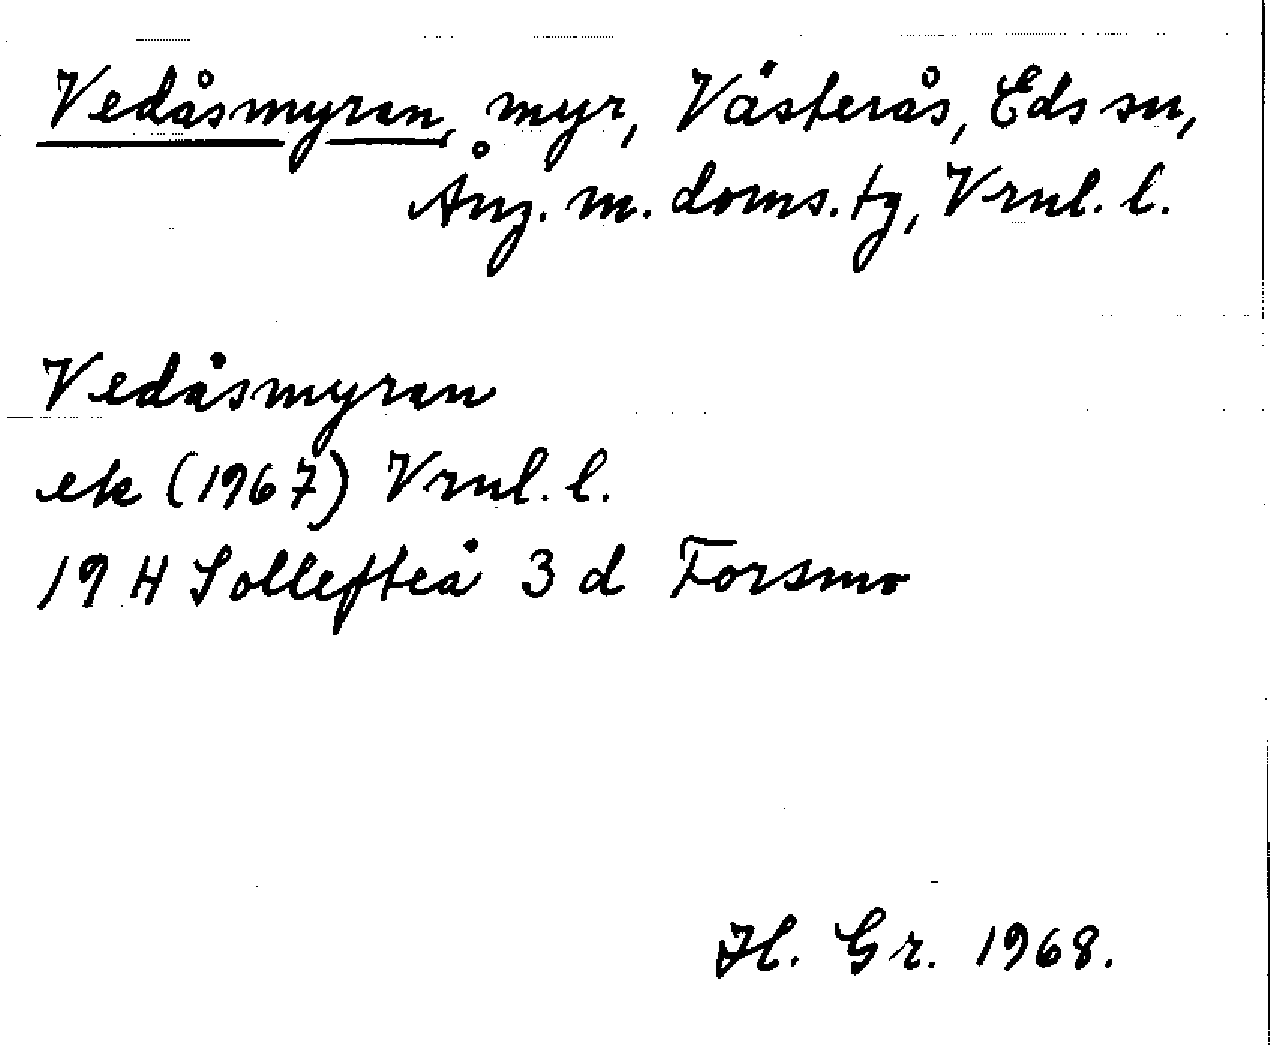 Vedåsmyran, myr, Västerås, Eds sn,
Ång. m. doms. tg, Vrnl. l.
Vedåsmyran
ek (1967) Vrnl. l.
19 H Sollefteå 3 d Forsmo
H. Gr. 1968.